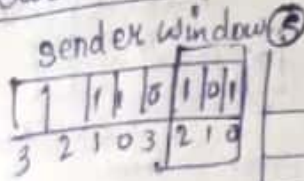 sender window 5
1 1 1 0 1 0 1
3 2 1 0 3 2 1 0